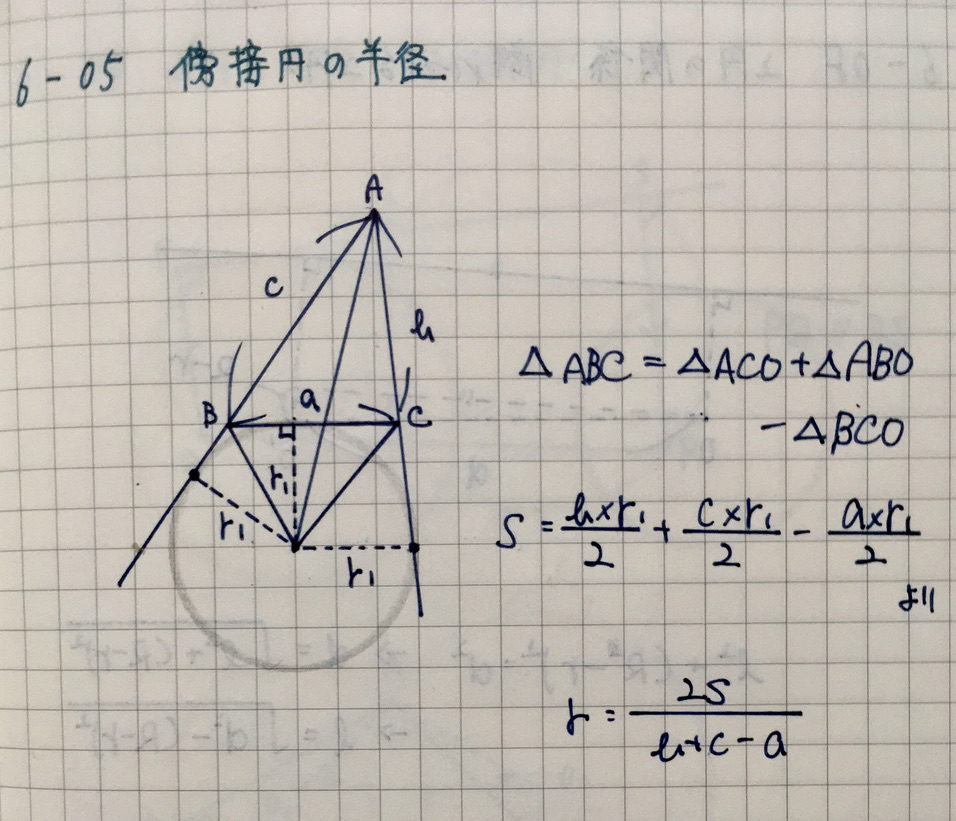 6-05 傍接円の半径
A
c
b
B
a
C
r₁
r₁
r₁
△ABC = △ACO + △ABO
- △BCO
S = b×r₁/2 + c×r₁/2 - a×r₁/2
より
r = 2S/b+c-a